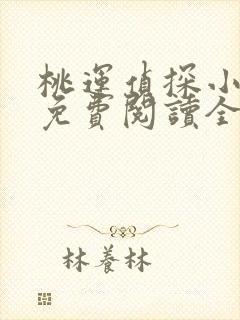 桃運偵探小
免費閱讀全
林養林